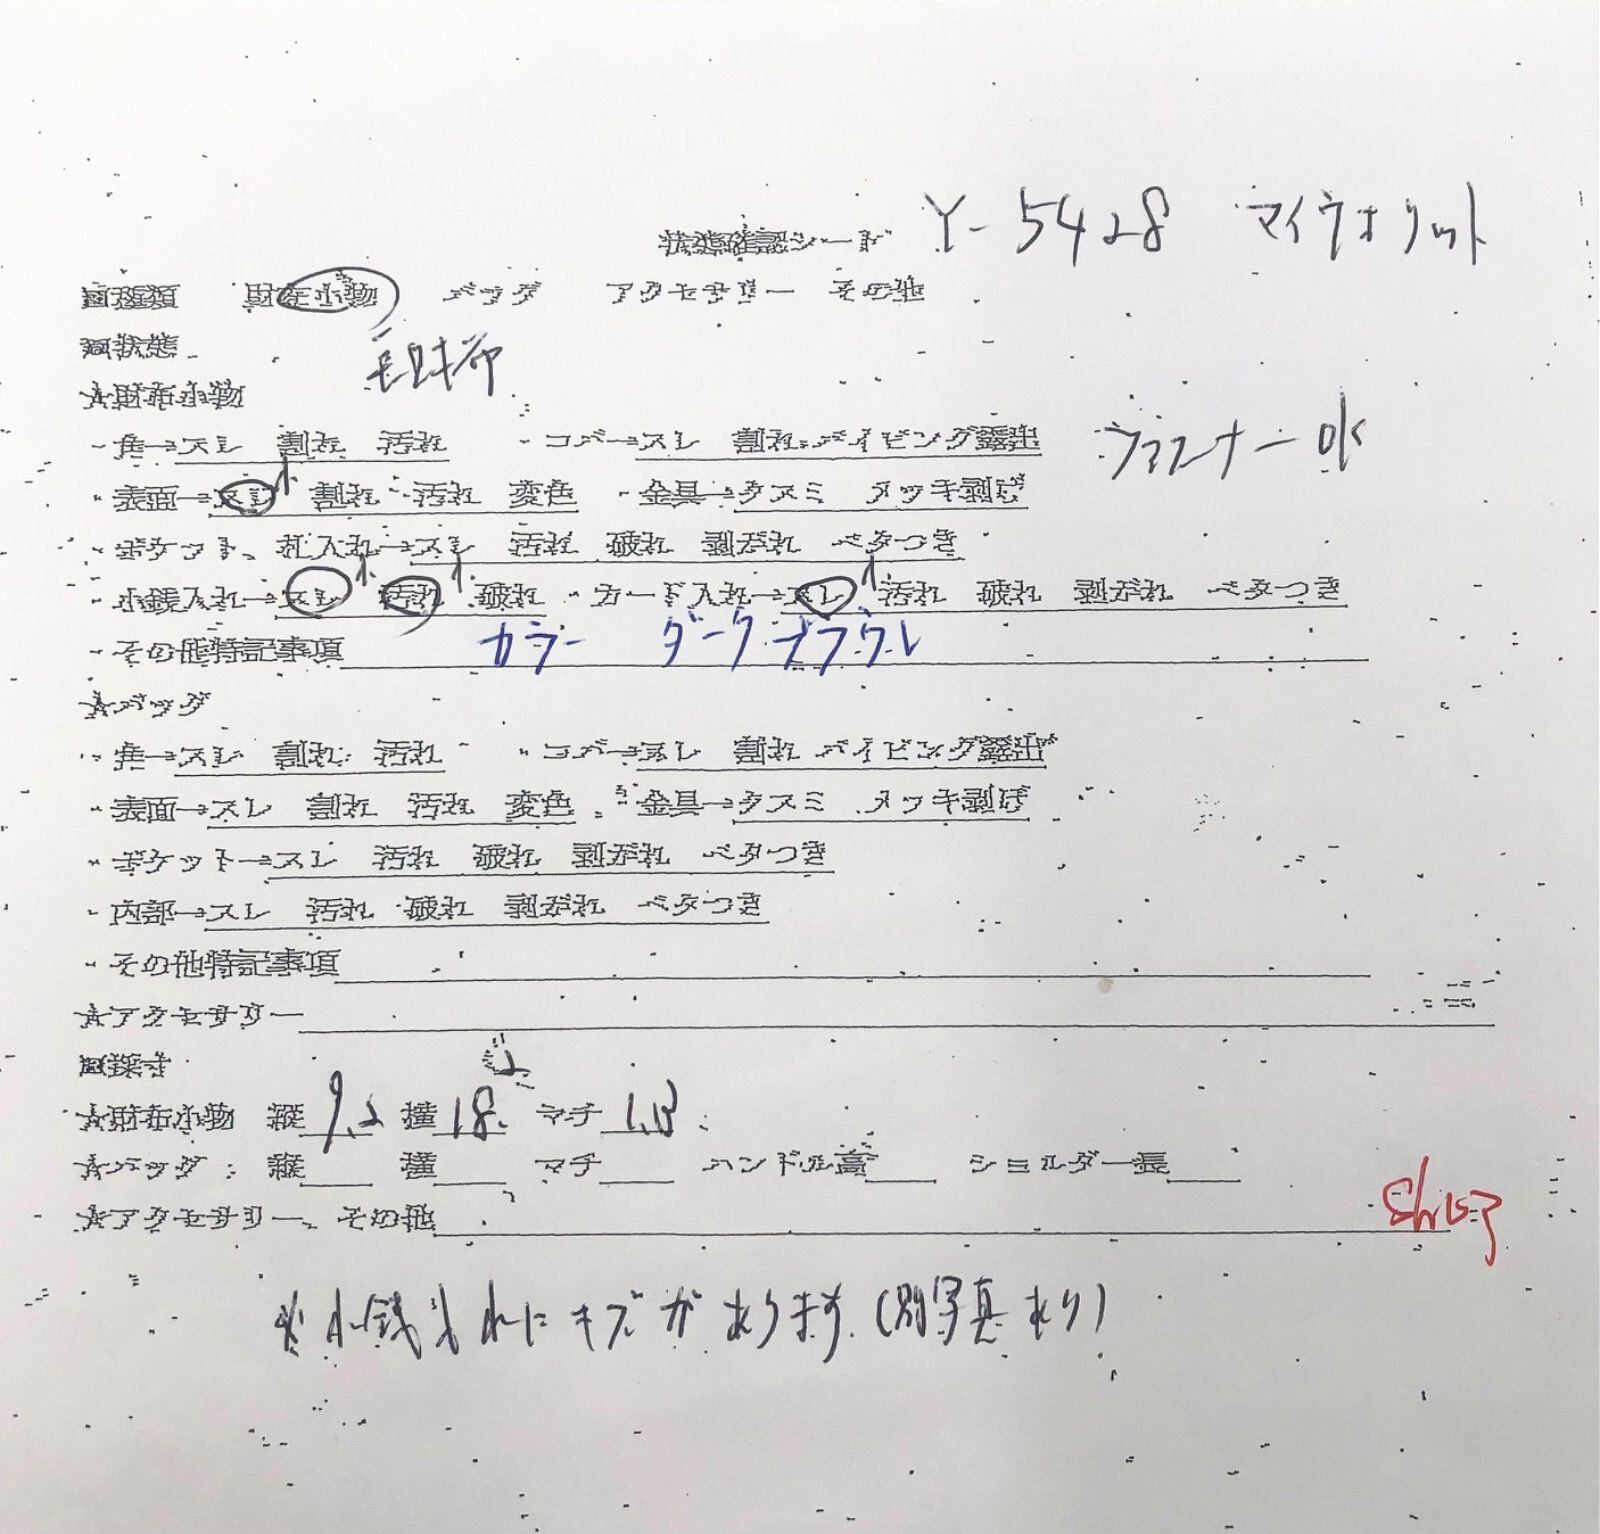 状態確認シート Y-5428 マイウォレット
□種類 財布小物 バッグ アクセサリー その他
□状態 長財布
★財布小物
・角→スレ 割れ 汚れ ・コバ→スレ 割れ パイピング露出 ファスナー OK
・表面→スレ 小 割れ 汚れ 変色 ・金具→クスミ メッキ剥げ
・ポケット、札入れ→スレ 汚れ 破れ 剥がれ ベタつき
・小銭入れ→スレ 小 汚れ 小 破れ ・カード入れ→スレ 小 汚れ 破れ 剥がれ ベタつき
・その他特記事項 カラー ダーク
★バッグ
・角→スレ 割れ 汚れ ・コバ→スレ 割れ パイピング露出
・表面→スレ 割れ 汚れ 変色 ・金具→クスミ メッキ剥げ
・ポケット→スレ 汚れ 破れ 剥がれ ベタつき
・内部→スレ 汚れ 破れ 剥がれ ベタつき
・その他特記事項
★アクセサリー
□採寸
★財布小物 縦 9.2 横 18. マチ
★バッグ 縦 横 マチ ハンドル高 ショルダー長
★アクセサリー、その他
※小銭入れにキズがあります(別写真あり)